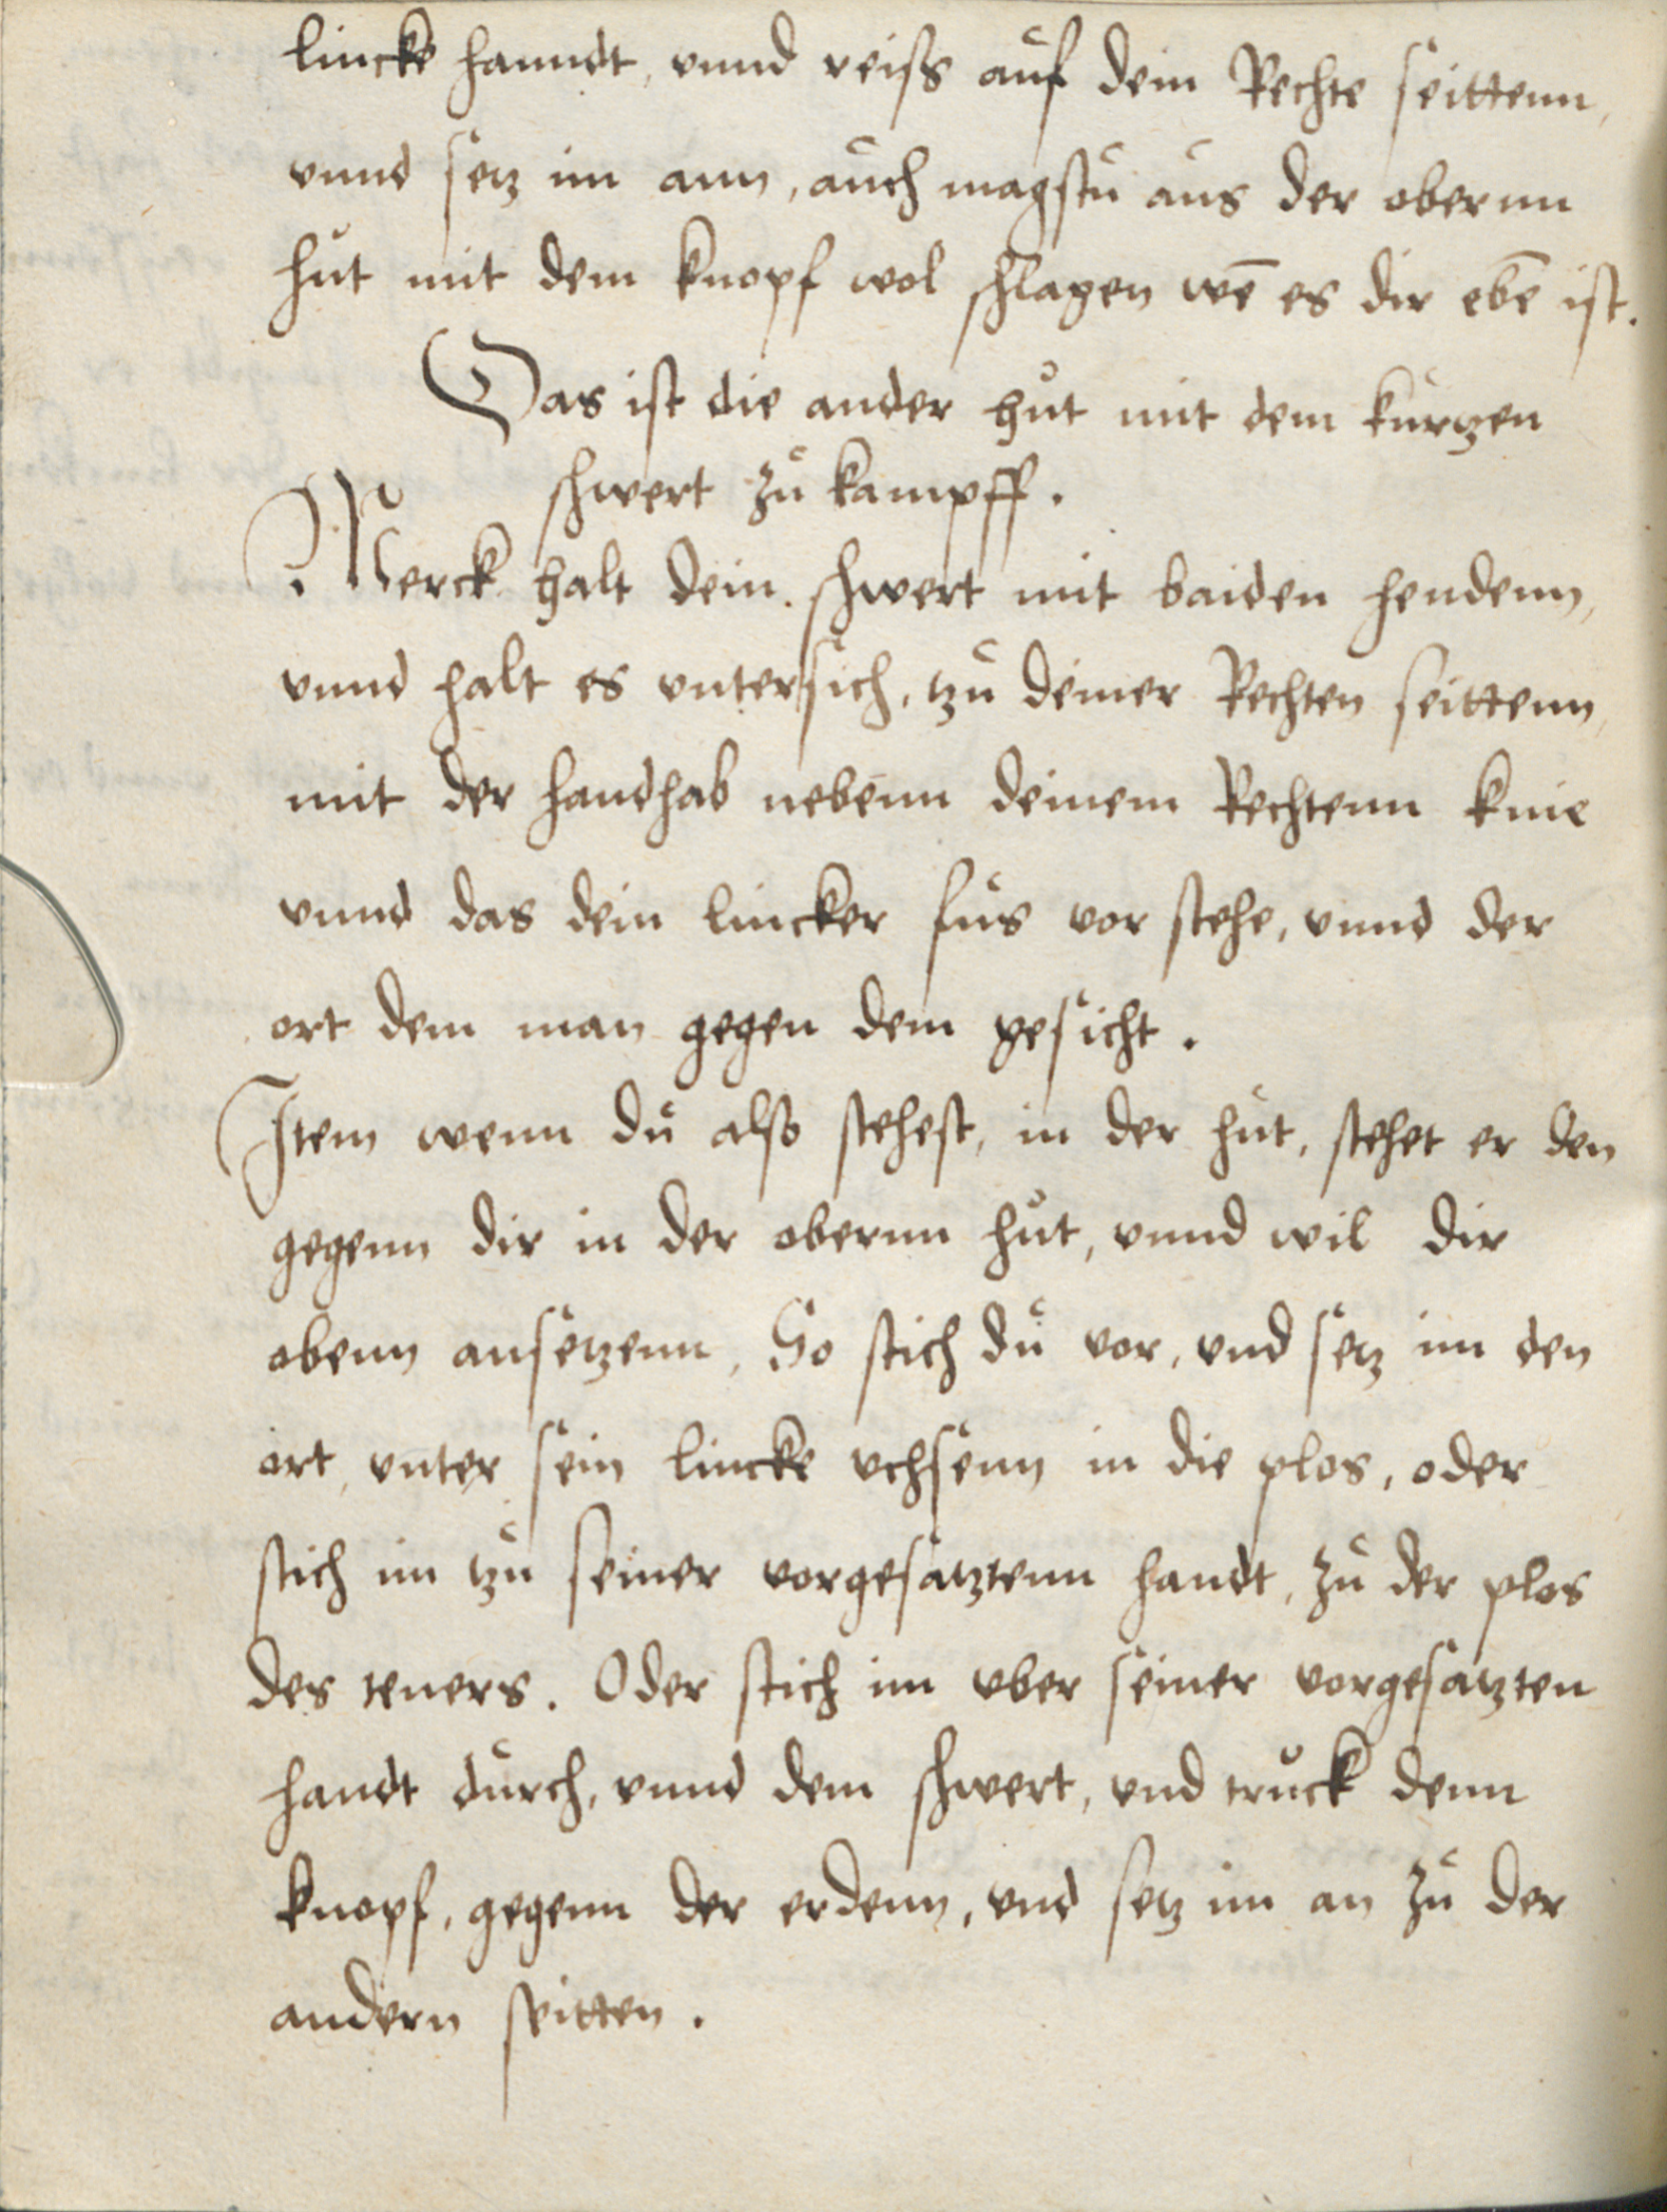 lincke hanndt, vnnd reiss auf dein Rechte seittenn,
vnnd setz im ann, auch magstu aus der obernn
hut mit dem knopf wol schlagen wē es dir ebē ist.
Das ist die ander hut mit dem kurtzen
schwert zu kampff.
Merck halt dein schwert mit baiden hendenn,
vnnd halt es vntersich, tzu deiner Rechten seittenn,
mit der handhab nebenn deinem Rechtenn knie
vnnd das dein lincker fus vor stehe, vnnd der
ort dem man gegen dem gesicht.
Item wenn du also stehest, in der hut, stehet er den
gegenn dir in der obernn hut, vnnd wil dir
obenn ansetzenn, So stich du vor, vnd setz im den
ort, vnter sein lincke vchsenn in die plos, oder
stich im tzu seiner vorgesatztenn handt, zu der plos
des teners. Oder stich im vber seiner vorgesatzten
handt durch, vnnd dem schwert, vnd truck denn
knopf, gegenn der erdenn, vnd setz im an zu der
andern seitten.